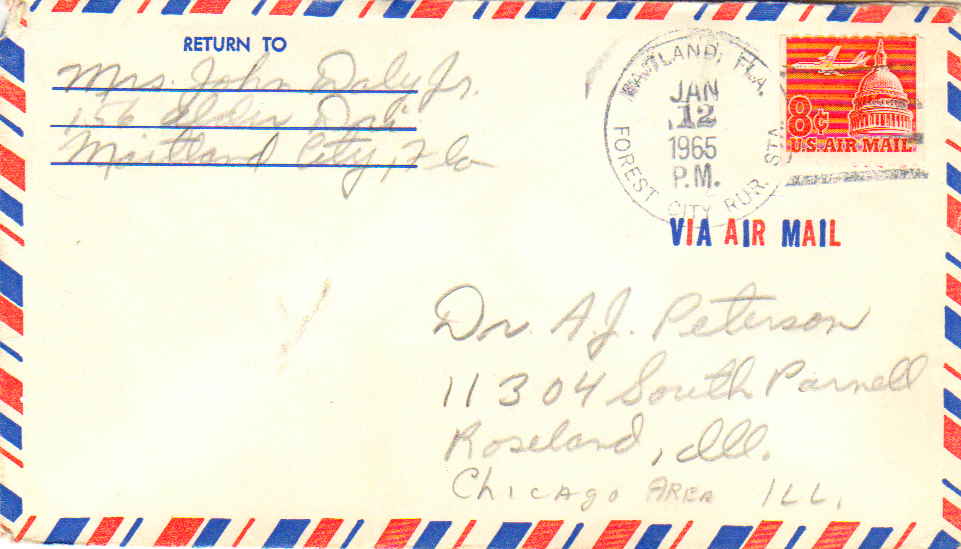 RETURN TO
Mrs. John Daly Jr.
156 Alder Dri
Maitland City, Fla
MAITLAND, FLA.
JAN
12
1965
P.M.
FOREST CITY RUR. STA.
8¢
U.S. AIR MAIL
VIA AIR MAIL
Dr. A.J. Peterson
11304 South Parnell
Roseland, Ill.
Chicago AREA ILL.